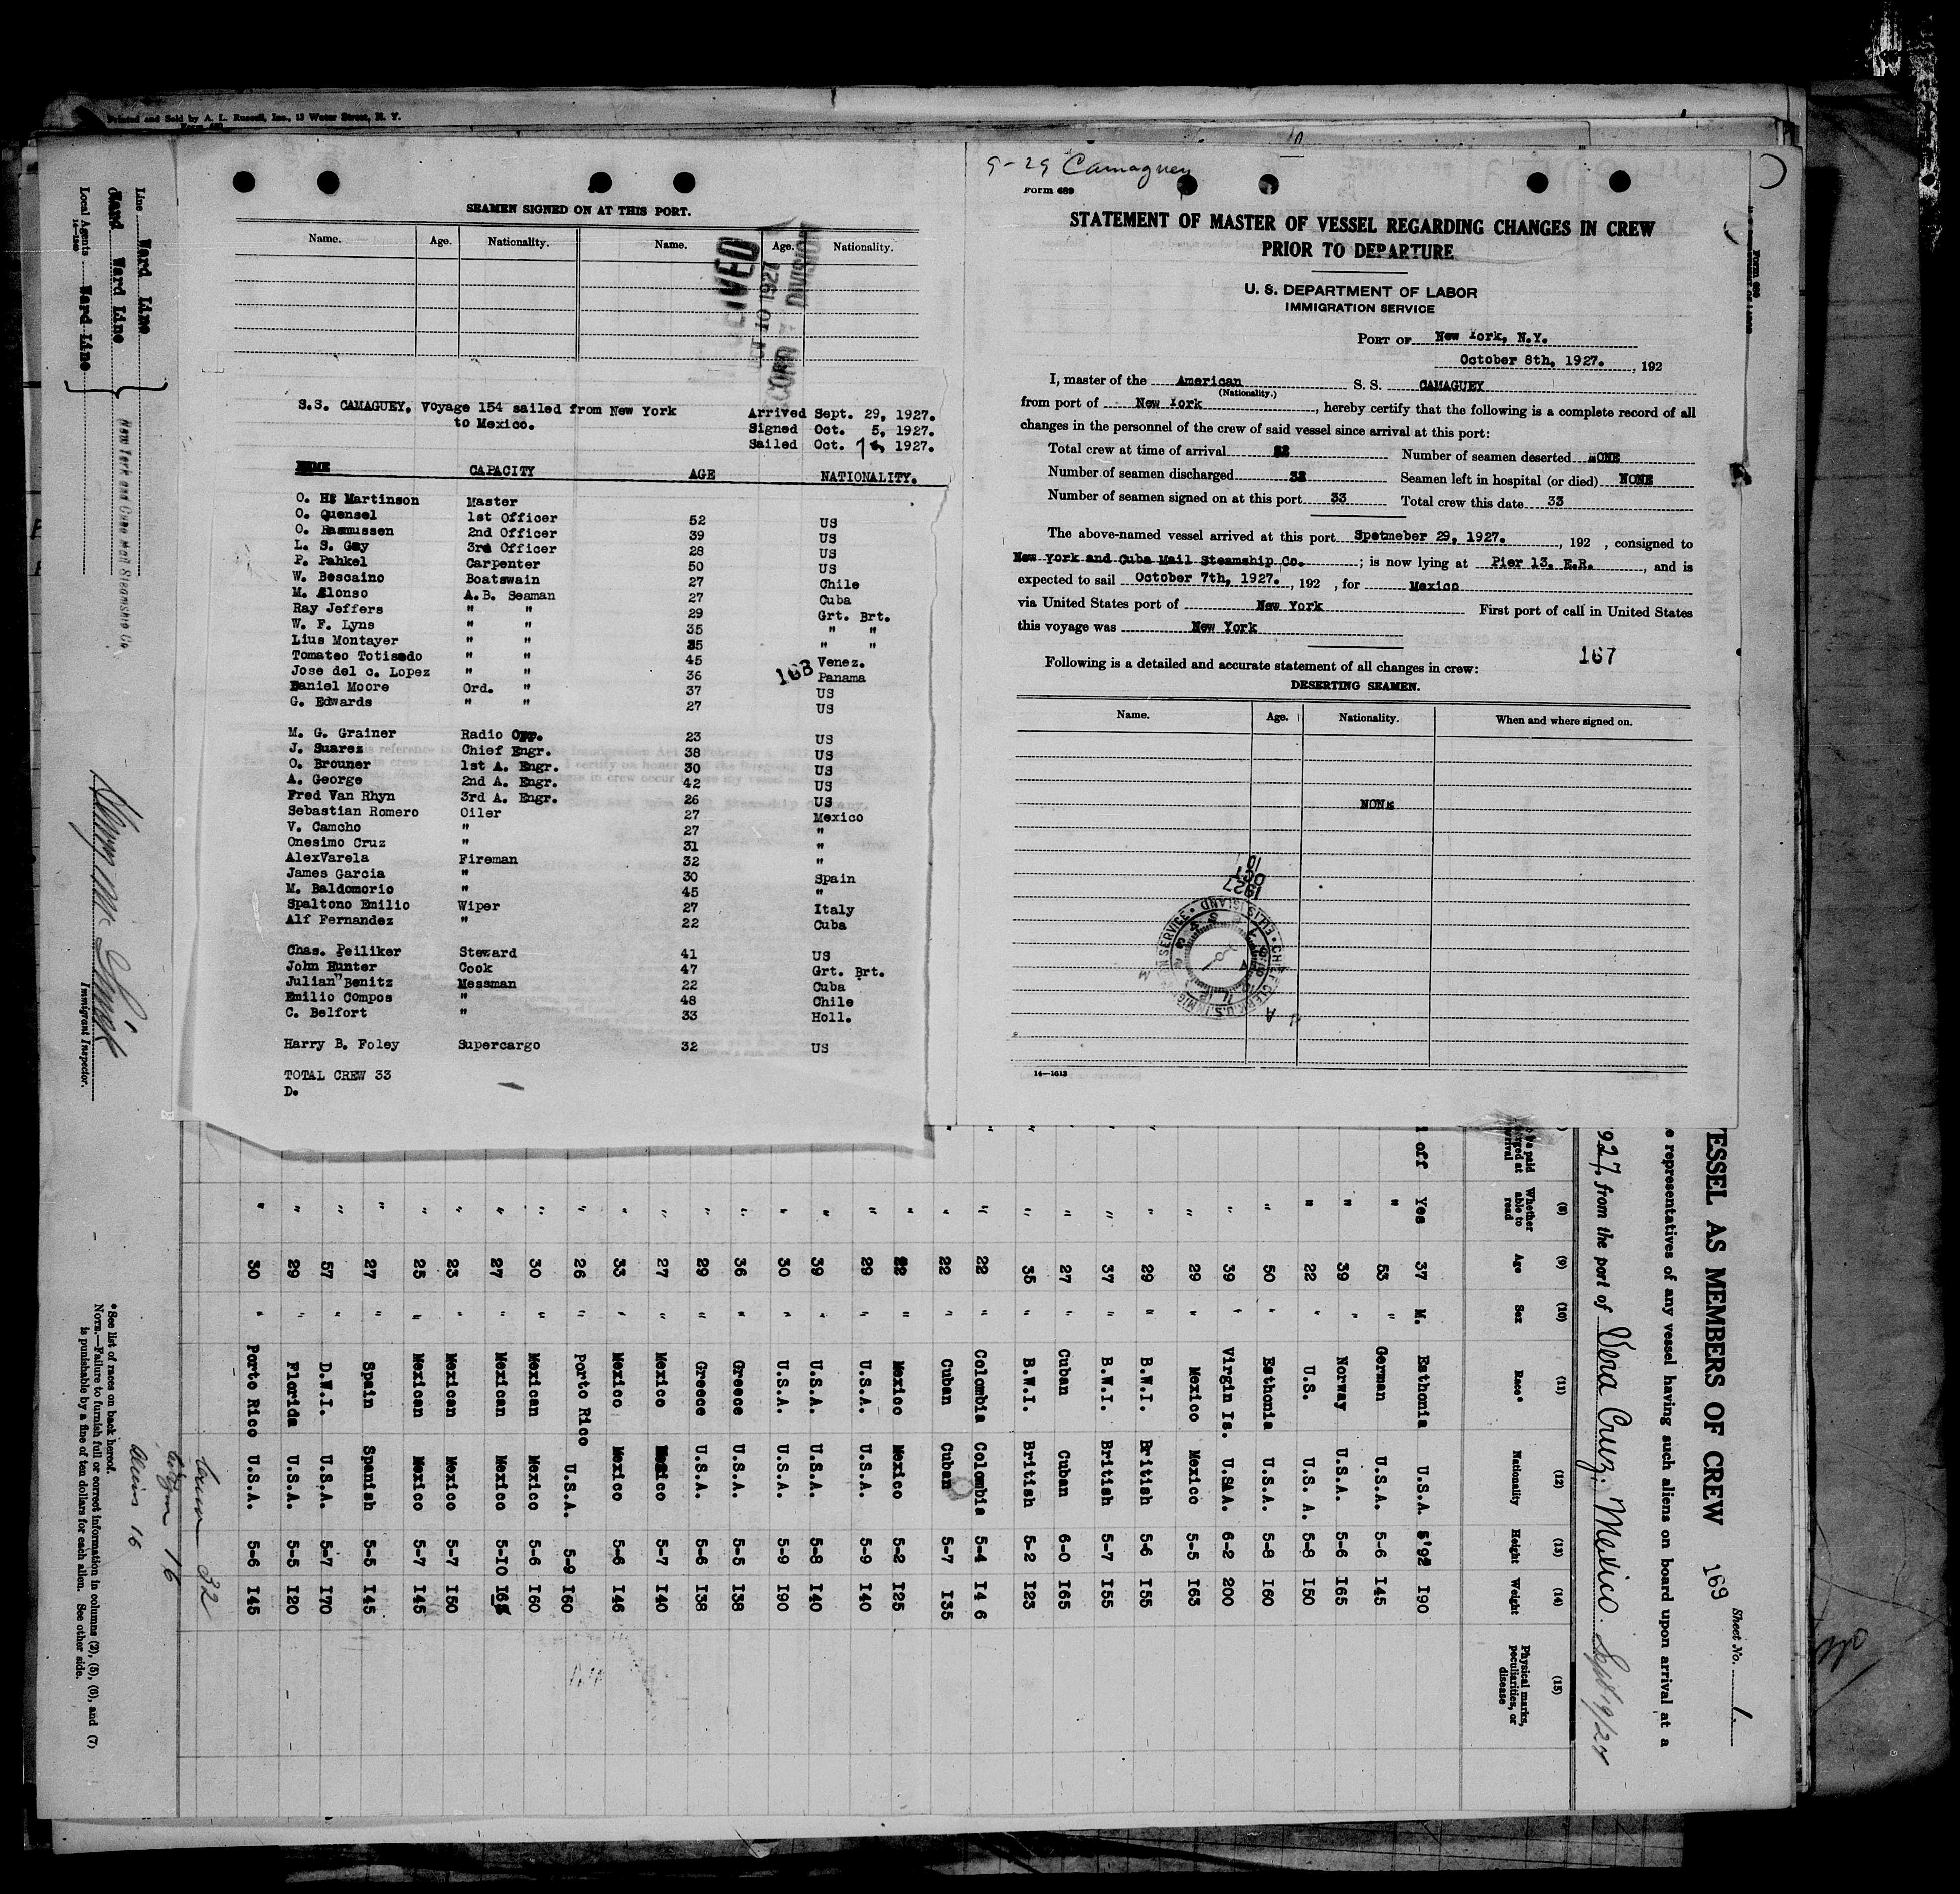 Printed and Sold by A. L. Russell, Inc., 13 Water Street, N. Y.
SEAMEN SIGNED ON AT THIS PORT.
Name. Age. Nationality. Name. Age. Nationality.
S.S. CAMAGUEY, Voyage 154 sailed from New York
to Mexico.
Arrived Sept. 29, 1927.
Signed Oct. 5, 1927.
Sailed Oct. 7 1927.
NAME CAPACITY AGE NATIONALITY.
O. H. Martinson Master
O. Quensel 1st Officer 52 US
O. Rasmussen 2nd Officer 39 US
L. S. Gay 3rd Officer 28 US
P. Pahkel Carpenter 50 US
W. Bescaino Boatswain 27 Chile
M. Alonso A.B. Seaman 27 Cuba
Ray Jeffers " " 29 Grt. Brt.
W. F. Lyns " " 35 " "
Lius Montayer " " 35 " "
Tomateo Totisedo " " 45 Venez.
Jose del c. Lopez " " 36 Panama
168
Daniel Moore Ord. " 37 US
G. Edwards " " 27 US
M. G. Grainer Radio Opp. 23 US
J. Suarez Chief Engr. 38 US
O. Brouner 1st A. Engr. 30 US
A. George 2nd A. Engr. 42 US
Fred Van Rhyn 3rd A. Engr. 26 US
Sebastian Romero Oiler 27 Mexico
V. Camcho " 27 "
Onesimo Cruz " 31 "
AlexVarela Fireman 32 "
James Garcia " 30 Spain
M. Baldomorio " 45 "
Spaltono Emilio Wiper 27 Italy
Alf Fernandez " 22 Cuba
Chas. Peiliker Steward 41 US
John Hunter Cook 47 Grt. Brt.
Julian Benitz Messman 22 Cuba
Emilio Compos " 48 Chile
C. Belfort " 33 Holl.
Harry B. Foley Supercargo 32 US
TOTAL CREW 33
D.
9-29 Camaguey
Form 689
STATEMENT OF MASTER OF VESSEL REGARDING CHANGES IN CREW
PRIOR TO DEPARTURE
U. S. DEPARTMENT OF LABOR
IMMIGRATION SERVICE
PORT OF New York, N.Y.
October 8th, 1927. , 192
I, master of the American S. S. CAMAGUEY
(Nationality.)
from port of New York , hereby certify that the following is a complete record of all
changes in the personnel of the crew of said vessel since arrival at this port:
Total crew at time of arrival 32 Number of seamen deserted NONE
Number of seamen discharged 32 Seamen left in hospital (or died) NONE
Number of seamen signed on at this port 33 Total crew this date 33
The above-named vessel arrived at this port Spetmeber 29, 1927. , 192 , consigned to
New York and Cuba Mail Steamship Co. ; is now lying at Pier 13, E.R. , and is
expected to sail October 7th, 1927. , 192 , for Mexico
via United States port of New York First port of call in United States
this voyage was New York
167
Following is a detailed and accurate statement of all changes in crew:
DESERTING SEAMEN.
Name. Age. Nationality. When and where signed on.
NONE
1927
OCT
10
14—1613
Line Ward Line
Ward Line
Local Agents Ward Line
New York and Cuba Mail Steamship Co
Immigrant Inspector.
ESSEL AS MEMBERS OF CREW
169
Sheet No. 1.
e representatives of any vessel having such aliens on board upon arrival at a
927, from the port of Vera Cruz, Mexico. Sept 19/27
(8) Whether able to read
(9) Age
(10) Sex
(11) Race*
(12) Nationality
(13) Height
(14) Weight
(15) Physical marks, peculiarities, or disease
off Yes 37 M. Esthonia U.S.A. 190
" 53 " German U.S.A. 5-6 145
" 39 " Norway U.S.A. 5-6 165
" 22 " U.S. U.S. A. 5-8 150
" 50 " Esthonia U.S.A. 5-8 160
" 39 " Virgin Is. U.S.A. 6-2 200
" 29 " Mexico Mexico 5-5 163
" 29 " B.W.I. British 5-6 155
" 37 " B.W.I. British 5-7 155
" 27 " Cuban Cuban 6-0 165
" 35 " B.W.I. British 5-2 123
" 22 " Colombia Colombia 5-4 146
" 22 " Cuban Cuban 5-7 135
" 22 " Mexico Mexico 5-2 125
" 29 " U.S.A. U.S.A. 5-9 140
" 39 " U.S.A. U.S.A. 5-8 140
" 30 " U.S.A. U.S.A. 5-9 190
" 36 " Greece U.S.A. 5-5 138
" 29 " Greece U.S.A. 5-6 138
" 27 " Mexico Mexico 5-7 140
" 33 " Mexico Mexico 5-6 146
" 26 " Porto Rico U.S.A. 5-9 160
" 30 " Mexican Mexico 5-6 160
" 27 " Mexican Mexico 5-10
" 23 " Mexican Mexico 5-7 150
" 25 " Mexican Mexico 5-7 145
" 27 " Spain Spanish 5-5 145
" 57 " D.W.I. U.S.A. 5-7 170
" 29 " Florida U.S.A. 5-5 120
" 30 " Porto Rico U.S.A. 5-6 145
32
16
Aliens 16
*See list of races on back hereof.
NOTE.—Failure to furnish full or correct information in columns (2), (5), (6), and (7)
is punishable by a fine of ten dollars for each alien. See other side.